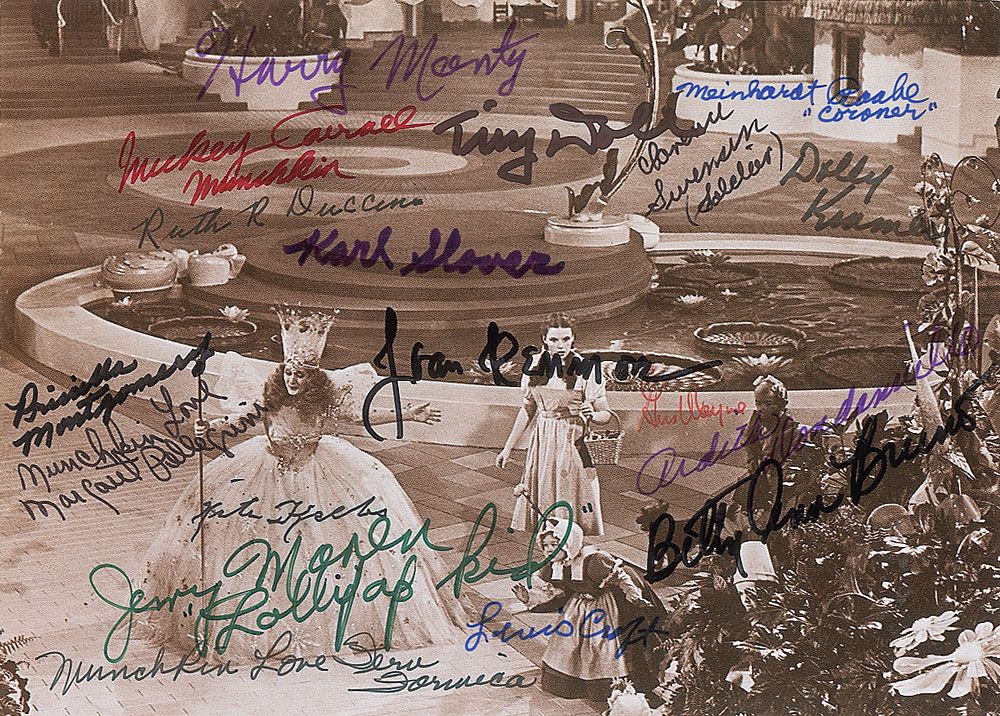 Harry Monty
Meinhardt Raabe
"Coroner"
Mickey Carroll
Munchkin
Tiny Doll
Clarence
Swensen
(Soldier)
Dolly
Kramer
Ruth R Duccini
Karl Slover
Joan Kenmore
Priscilla
Montgomery
Munchkin Love
Margaret Pellegrini
Gus Wayne
Betty Ann Bruno
Jerry Maren
"Lollipop Kid"
Lewis Croft
Munchkin Love Fern
Formica